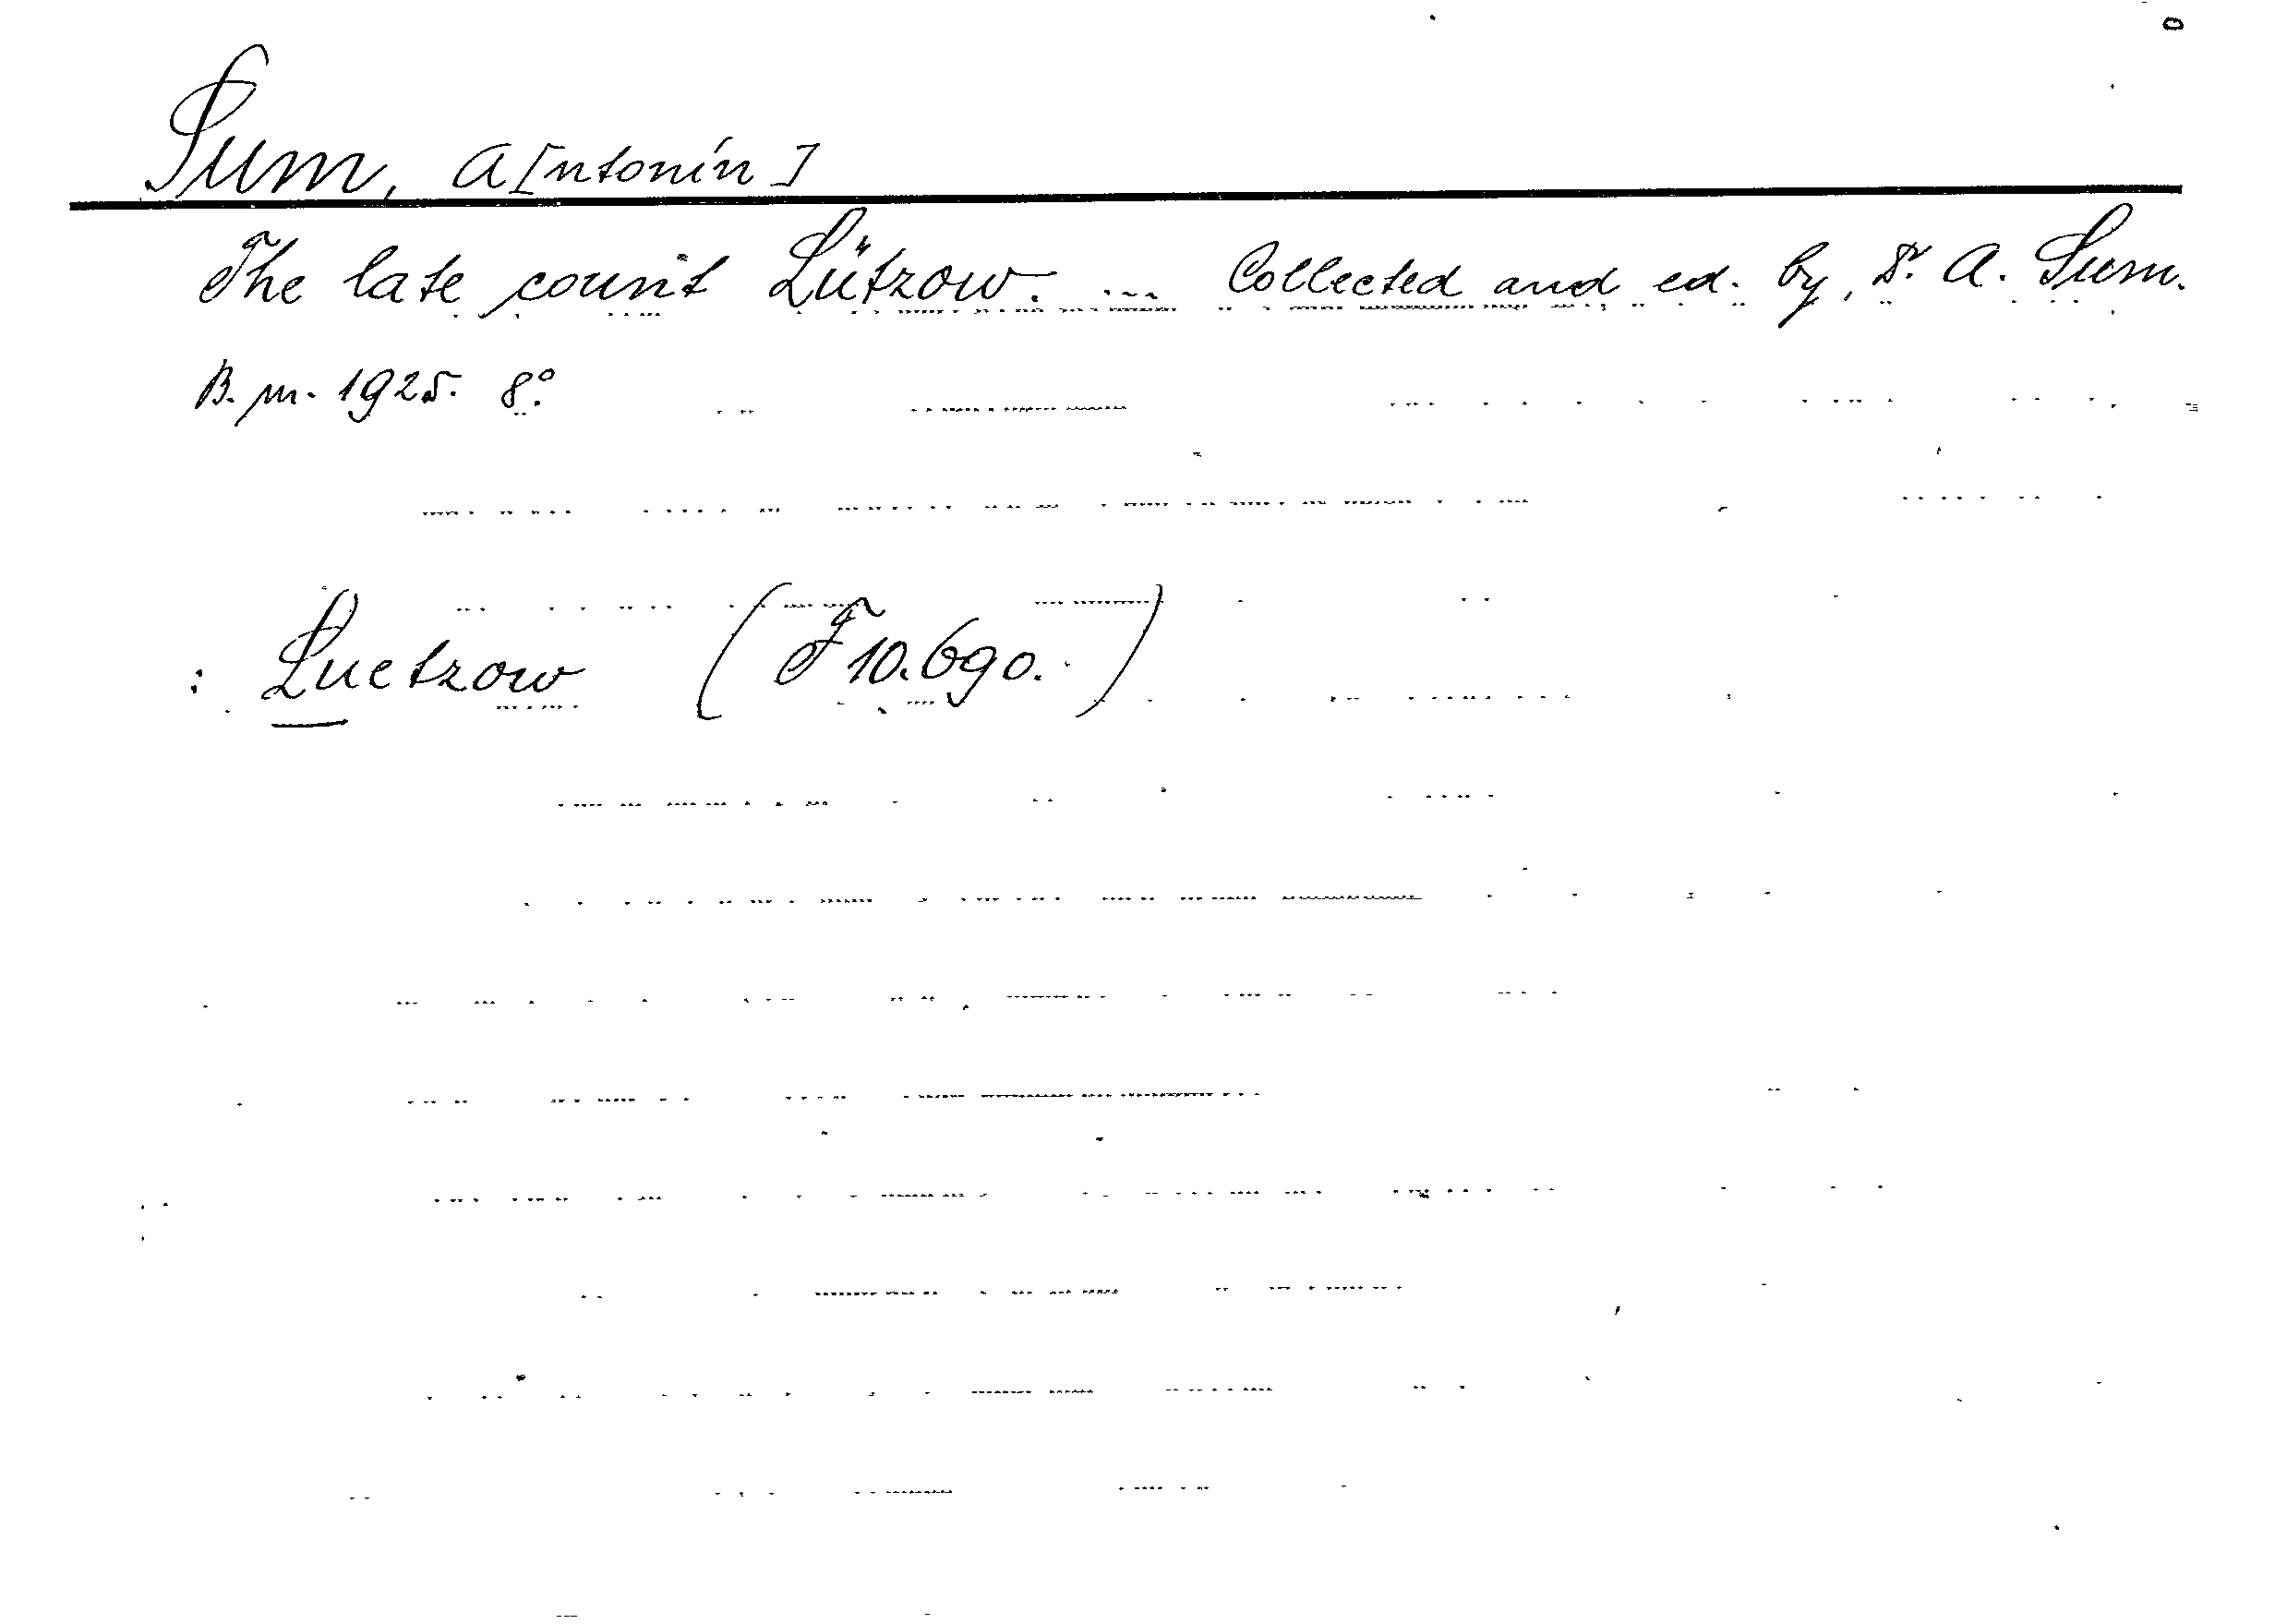 Sum, A[ntonín]
The late count Lützow. ... Collected and ed. by Dr. A. Sum.
B. m. 1925. 8°.
: Luetzow (F 10.690.)